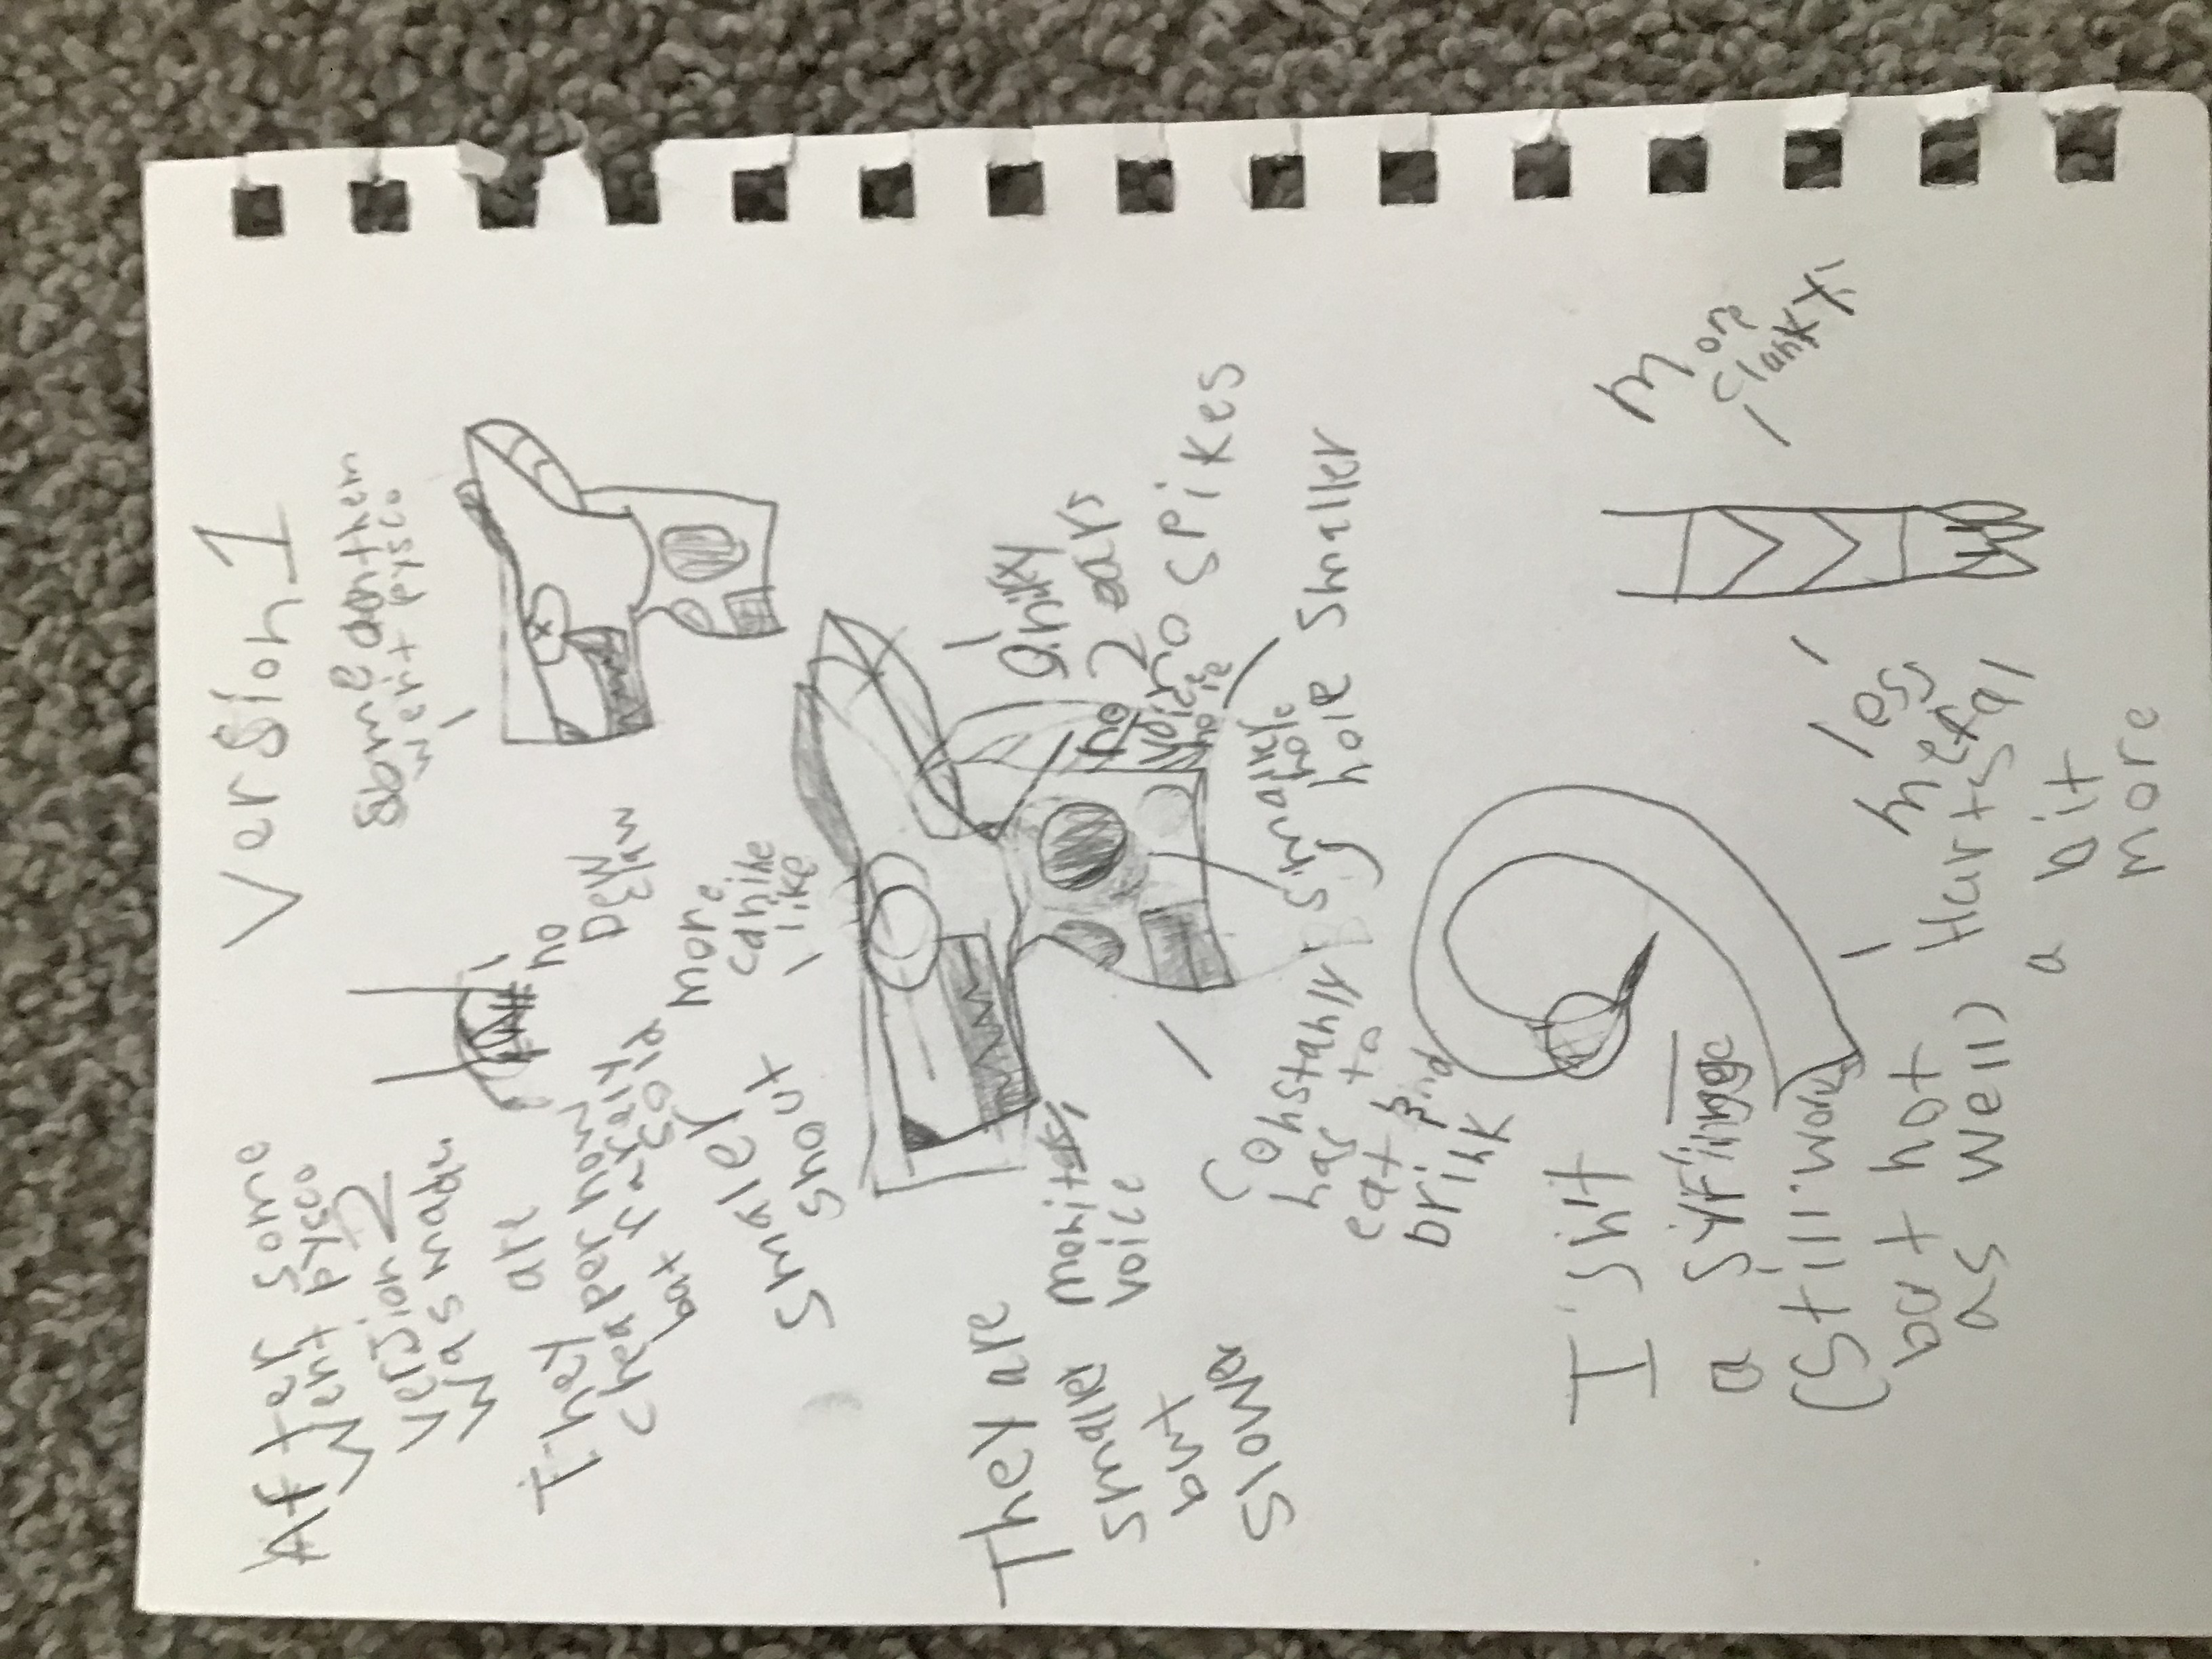 Version 1
After some
went pysco
version 2
was made
They are
cheaper now
but rarely
sold
no
DEW
claw
Some of them
went pysco
smaler
snout
more
canine
like
They are
smaller
but
slower
voice
Only
2 ears
no spikes
smaller
hole
hole smaller
Constanly
has to
eat and
brink
Isint
a syringe
(Still works
but not
as well)
less
metal
Hurts
a bit
more
More
clanky